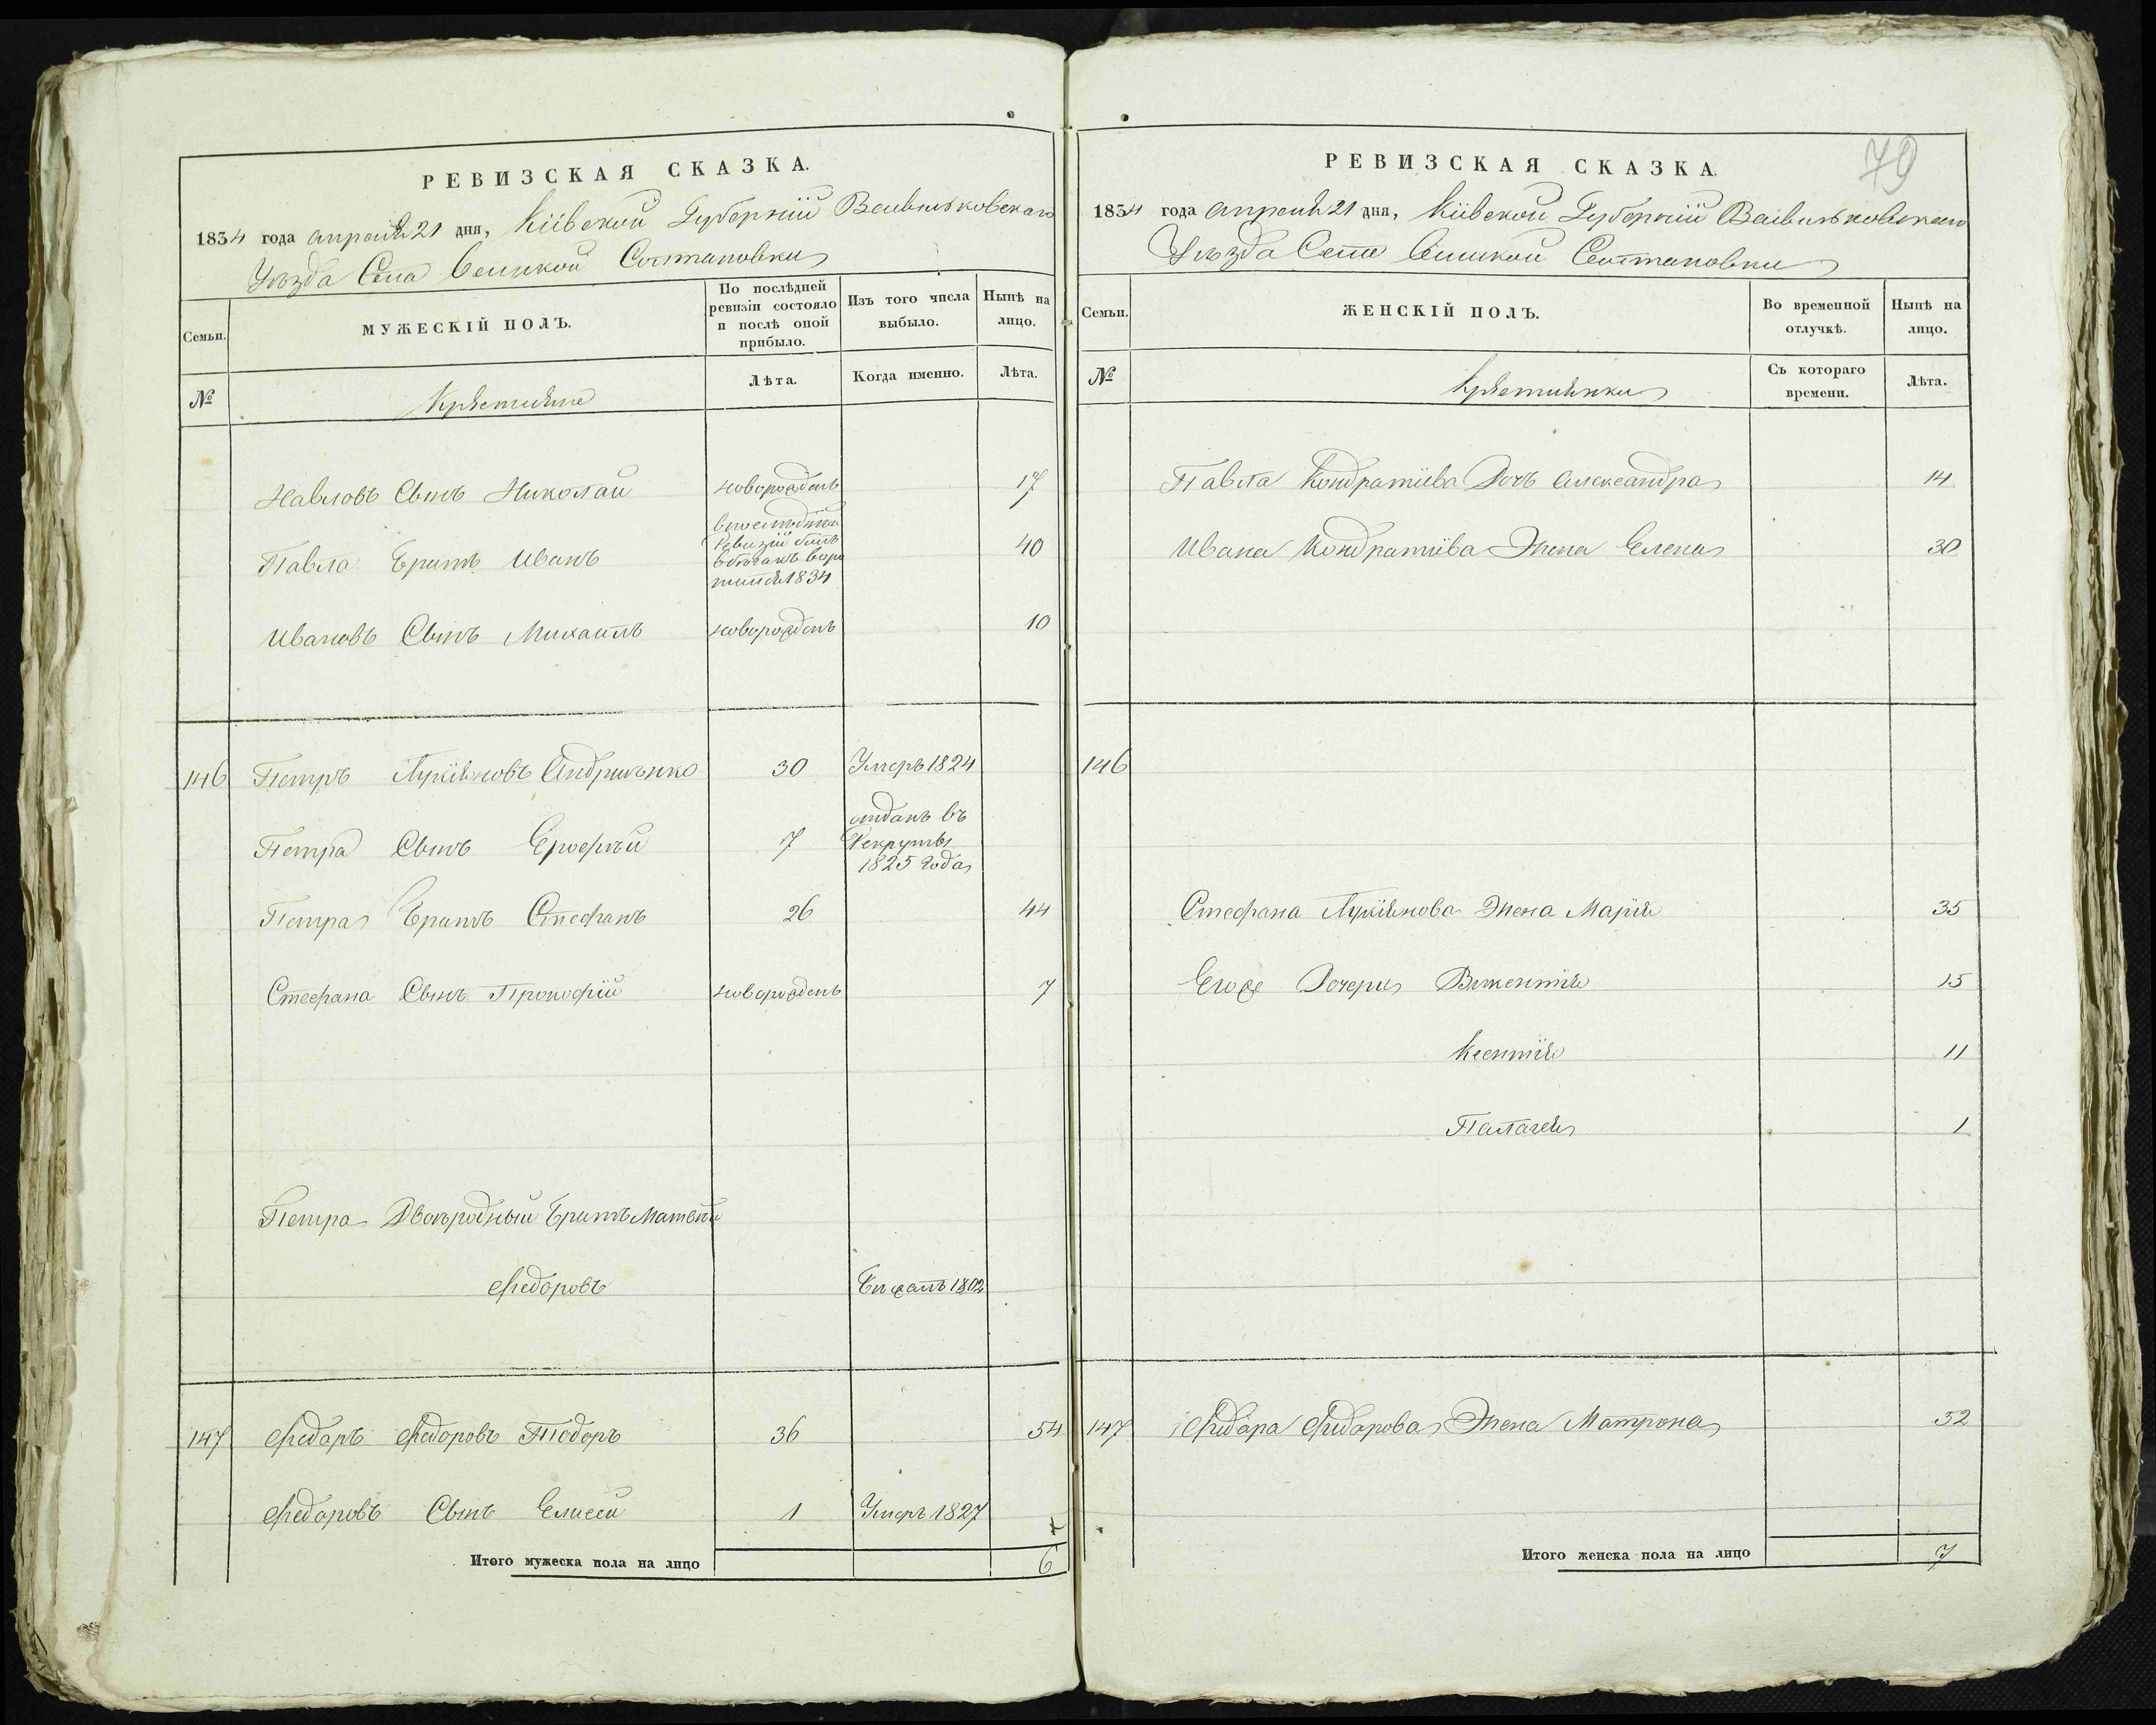 РЕВИЗСКАЯ СКАЗКА.
1834 года апреля 21 дня, Кіевской Губерніи Васильковскаго
Уѣзда Села Великой Солтановки
Семьи.
МУЖЕСКІЙ ПОЛЪ.
По послѣдней
ревизіи состояло
и послѣ оной
прибыло.
Изъ того числа
выбыло.
Нынѣ на
лицо.
№
Крестьяне
Лѣта.
Когда именно.
Лѣта.
Павловъ Сынъ Николай новорожденъ 17
Павла Братъ Иванъ 40
Ревизіи былъ
1834
Ивановъ Сынъ Михаилъ новорожденъ 10
146 Петръ Лукіяновъ Андриенко 30 Умеръ 1824
Петра Сынъ Ерофѣй 7 отданъ въ
Рекруты
1825 года
Петра Братъ Стефанъ 26 44
Стефана Сынъ Прокофій новорожденъ 7
Петра Двоюродный Братъ Матвѣй
Федоровъ 1802
147 Федоръ Федоровъ 36 54
Федоровъ Сынъ Елисей 1 Умеръ 1827
Итого мужеска пола на лицо 6
79
РЕВИЗСКАЯ СКАЗКА.
1834 года апреля 21 дня, Кіевской Губерніи Васильковскаго
Уѣзда Села Великой Солтановки
Семьи.
ЖЕНСКІЙ ПОЛЪ.
Во временной
отлучкѣ.
Нынѣ на
лицо.
№
Крестьянки
Съ котораго
времени.
Лѣта.
Павла Кондратіева Дочь Александра 14
Ивана Кондратіева Жена Елена 30
146
Стефана Лукіянова Жена Марія 35
Егоже Дочери 15
Ксентія 11
Палагея 1
147 Федора Федорова Жена Матрона 52
Итого женска пола на лицо 7